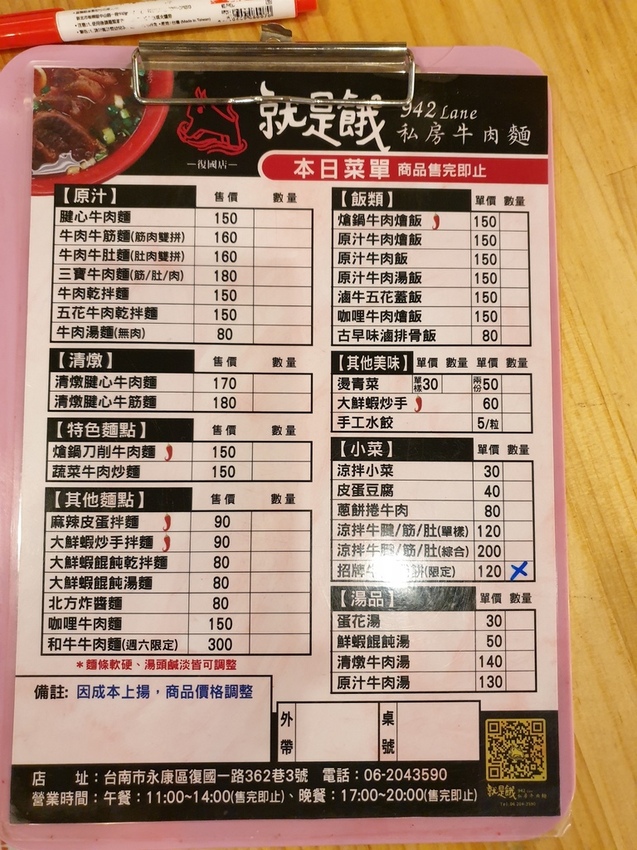 就是餓
942 Lane
私房牛肉麵
—復國店—
本日菜單 商品售完即止
【原汁】 售價 數量
腱心牛肉麵 150
牛肉牛筋麵(筋肉雙拼) 160
牛肉牛肚麵(肚肉雙拼) 160
三寶牛肉麵(筋/肚/肉) 180
牛肉乾拌麵 150
五花牛肉乾拌麵 150
牛肉湯麵(無肉) 80
【清燉】 售價 數量
清燉腱心牛肉麵 170
清燉腱心牛筋麵 180
【特色麵點】 售價 數量
熗鍋刀削牛肉麵 150
蔬菜牛肉炒麵 150
【其他麵點】 售價 數量
麻辣皮蛋拌麵 90
大鮮蝦炒手拌麵 90
大鮮蝦餛飩乾拌麵 80
大鮮蝦餛飩湯麵 80
北方炸醬麵 80
咖哩牛肉麵 150
和牛牛肉麵(週六限定) 300
*麵條軟硬、湯頭鹹淡皆可調整
【飯類】 單價 數量
熗鍋牛肉燴飯 150
原汁牛肉燴飯 150
原汁牛肉飯 150
原汁牛肉湯飯 150
滷牛五花蓋飯 150
咖哩牛肉燴飯 150
古早味滷排骨飯 80
【其他美味】 單價 數量 單價 數量
燙青菜 單樣30 兩份50
大鮮蝦炒手 60
手工水餃 5/粒
【小菜】 單價 數量
涼拌小菜 30
皮蛋豆腐 40
蔥餅捲牛肉 80
涼拌牛腱/筋/肚(單樣) 120
涼拌牛腱/筋/肚(綜合) 200
招牌牛 餅(限定) 120 X
【湯品】 單價 數量
蛋花湯 30
鮮蝦餛飩湯 50
清燉牛肉湯 140
原汁牛肉湯 130
備註: 因成本上揚，商品價格調整
外帶 桌號
店 址：台南市永康區復國一路362巷3號 電話：06-2043590
營業時間：午餐：11:00~14:00(售完即止)、晚餐：17:00~20:00(售完即止)
就是餓